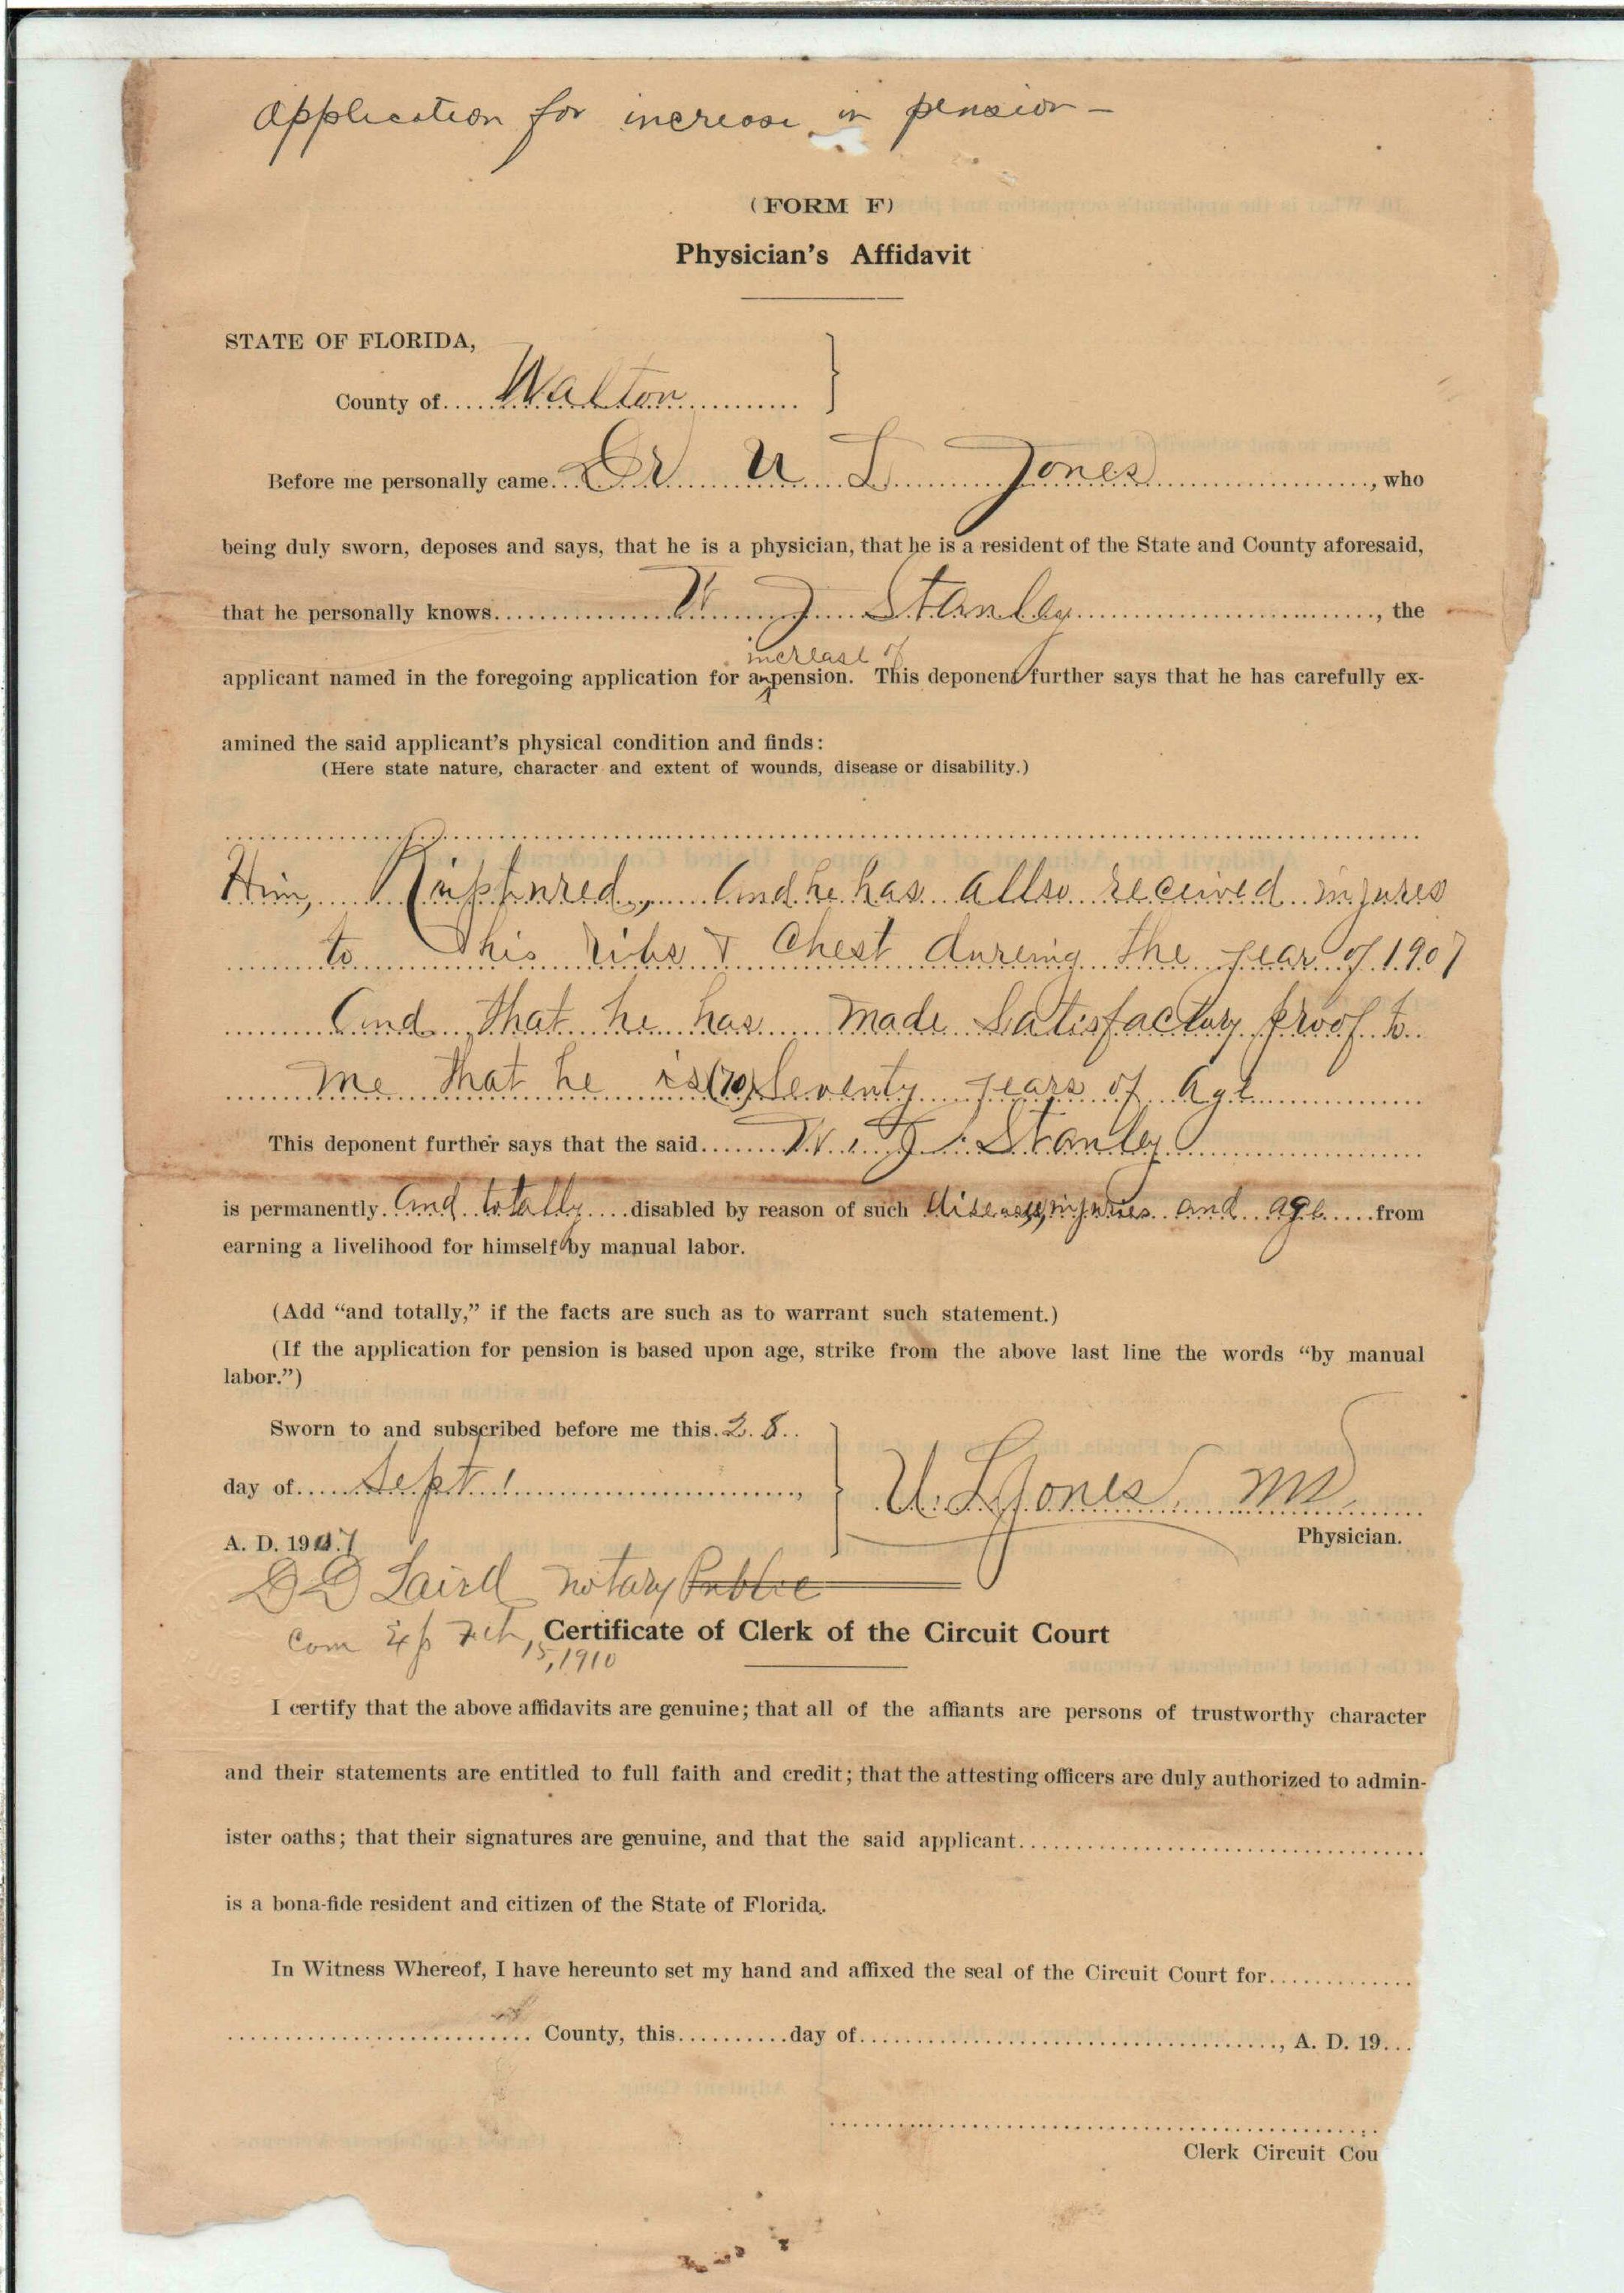 Application for increase in pension —
(FORM F)
Physician's Affidavit
STATE OF FLORIDA,
County of Walton
Before me personally came Dr U L Jones, who
being duly sworn, deposes and says, that he is a physician, that he is a resident of the State and County aforesaid,
that he personally knows W J Stanley, the
increase of
applicant named in the foregoing application for an pension. This deponent further says that he has carefully ex-
amined the said applicant's physical condition and finds:
(Here state nature, character and extent of wounds, disease or disability.)
Him, Ruptured, And he has allso received injures
to his ribs & Chest dureing the year of 1907
And that he has made Satisfactory proof to
me that he is (70) Seventy years of Age
This deponent further says that the said W. J. Stanley
is permanently and totally disabled by reason of such disease, injuries and age from
earning a livelihood for himself by manual labor.
(Add "and totally," if the facts are such as to warrant such statement.)
(If the application for pension is based upon age, strike from the above last line the words "by manual
labor.")
Sworn to and subscribed before me this 28
day of Sept,
U. L. Jones MD
A. D. 1907
Physician.
D D Laird notary Public
Com Exp Feb, 15, 1910
Certificate of Clerk of the Circuit Court
I certify that the above affidavits are genuine; that all of the affiants are persons of trustworthy character
and their statements are entitled to full faith and credit; that the attesting officers are duly authorized to admin-
ister oaths; that their signatures are genuine, and that the said applicant
is a bona-fide resident and citizen of the State of Florida.
In Witness Whereof, I have hereunto set my hand and affixed the seal of the Circuit Court for
County, this day of, A. D. 19
Clerk Circuit Cou